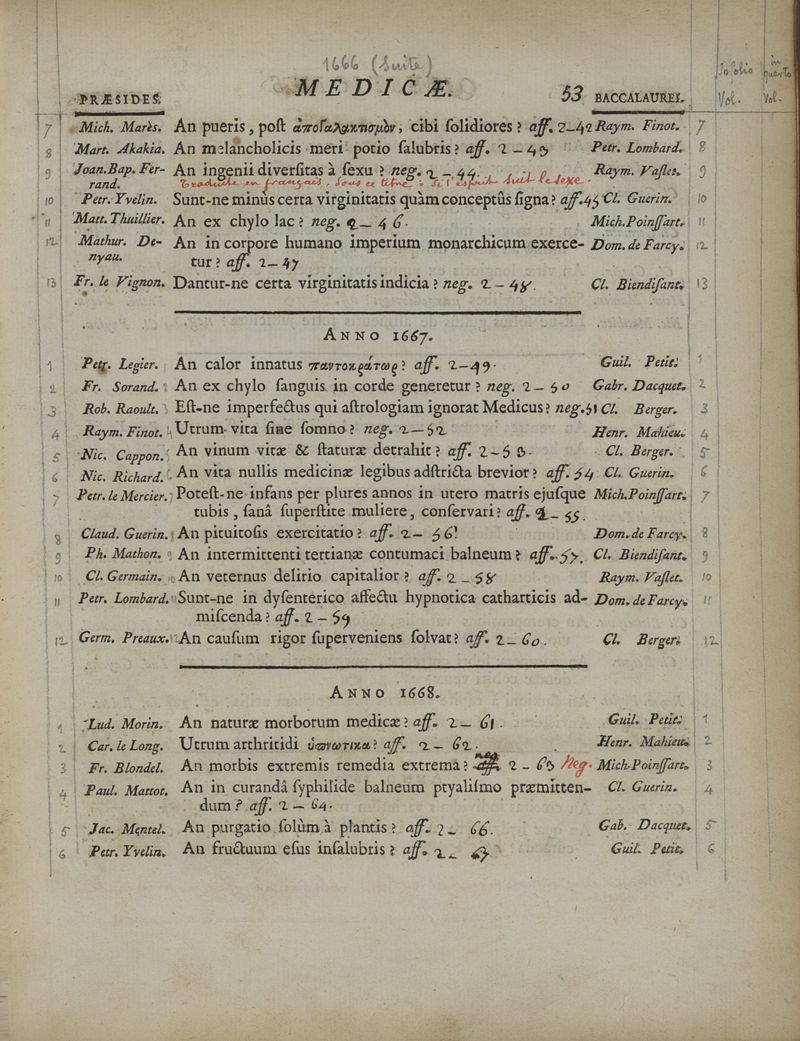 1666 (Suite)
MEDICÆ. 53
in folio in quarto
PRÆSIDES. BACCALAUREI. Vol. Vol.
7 Mich. Marès. An pueris, poſt ἀπογαλακτισμὸν, cibi ſolidiores? aff. 2-42 Raym. Finot. 7
8 Mart. Akakia. An melancholicis meri potio ſalubris? aff. 2-43 Petr. Lombard. 8
9 Joan. Bap. Fer- An ingenii diverſitas à ſexu? neg. 2-44. Raym. Vaſlet. 9
rand. Traduite en français, sous ce titre: Si l'esprit suit le sexe.
10 Petr. Yvelin. Sunt-ne minùs certa virginitatis quàm conceptûs ſigna? aff. 45 Cl. Guerin. 10
11 Matt. Thuillier. An ex chylo lac? neg. 2-46. Mich. Poinſſart. 11
12 Mathur. De- An in corpore humano imperium monarchicum exerce- Dom. de Farcy. 12
nyau. tur? aff. 2-47
13 Fr. le Vignon. Dantur-ne certa virginitatis indicia? neg. 2-48. Cl. Biendiſant. 13
ANNO 1667.
1 Petr. Legier. An calor innatus παντοκράτωρ? aff. 2-49. Guil. Petit. 1
2 Fr. Sorand. An ex chylo ſanguis in corde generetur? neg. 2-50 Gabr. Dacquet. 2
3 Rob. Raoult. Eſt-ne imperfectus qui aſtrologiam ignorat Medicus? neg. 51 Cl. Berger. 3
4 Raym. Finot. Utrum vita ſine ſomno? neg. 2-52 Henr. Mahieu. 4
5 Nic. Cappon. An vinum vitæ & ſtaturæ detrahit? aff. 2-53. Cl. Berger. 5
6 Nic. Richard. An vita nullis medicinæ legibus adſtricta brevior? aff. 54 Cl. Guerin. 6
7 Petr. le Mercier. Poteſt-ne infans per plures annos in utero matris ejuſque Mich. Poinſſart. 7
tubis, ſanâ ſuperſtite muliere, conſervari? aff. 2-55.
8 Claud. Guerin. An pituitoſis exercitatio? aff. 2-56. Dom. de Farcy. 8
9 Ph. Mathon. An intermittenti tertianæ contumaci balneum? aff. 57. Cl. Biendiſant. 9
10 Cl. Germain. An veternus delirio capitalior? aff. 2-58 Raym. Vaſlet. 10
11 Petr. Lombard. Sunt-ne in dyſenterico affectu hypnotica catharticis ad- Dom. de Farcy. 11
miſcenda? aff. 2-59
12 Germ. Preaux. An cauſum rigor ſuperveniens ſolvat? aff. 2-60. Cl. Berger. 12
ANNO 1668.
1 Lud. Morin. An naturæ morborum medicæ? aff. 2-61. Guil. Petit. 1
2 Car. le Long. Utrum arthritidi ὑπνωτικα? aff. 2-62. Henr. Mahieu. 2
3 Fr. Blondel. An morbis extremis remedia extrema? aff. neg. 2-63 Neg. Mich. Poinſſart. 3
4 Paul. Mattot. An in curandâ ſyphilide balneum ptyaliſmo præmitten- Cl. Guerin. 4
dum? aff. 2-64.
5 Jac. Mentel. An purgatio ſolùm à plantis? aff. 2-66. Gab. Dacquet. 5
6 Petr. Yvelin. An fructuum eſus inſalubris? aff. 2-67 Guil. Petit. 6